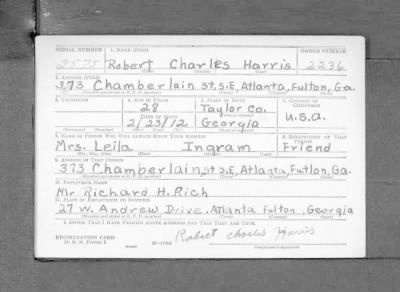 SERIAL NUMBER 1. NAME (Print) ORDER NUMBER
2575 Robert Charles Harris 2236
2. ADDRESS (Print)
373 Chamberlain St. S.E, Atlanta, Fulton, Ga.
3. TELEPHONE 4. AGE IN YEARS 5. PLACE OF BIRTH 6. COUNTRY OF CITIZENSHIP
28 Taylor Co.
DATE OF BIRTH
2/23/12 Georgia U.S.A.
7. NAME OF PERSON WHO WILL ALWAYS KNOW YOUR ADDRESS 8. RELATIONSHIP OF THAT PERSON
Mrs. Leila Ingram Friend
9. ADDRESS OF THAT PERSON
373 Chamberlain, St S.E, Atlanta, Fulton, Ga.
10. EMPLOYER'S NAME
Mr Richard H. Rich
11. PLACE OF EMPLOYMENT OR BUSINESS
27 W. Andrew Drive, Atlanta Fulton, Georgia
I AFFIRM THAT I HAVE VERIFIED ABOVE ANSWERS AND THAT THEY ARE TRUE.
REGISTRATION CARD
D. S. S. Form 1
Robert Charles Harris